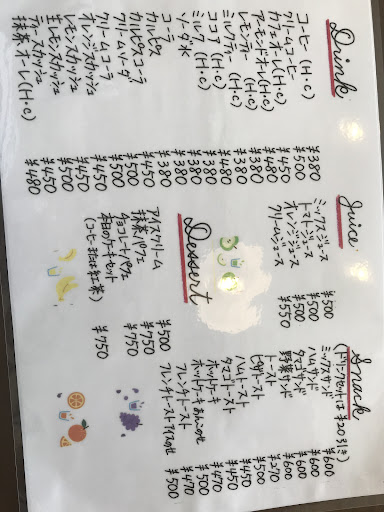 Drink
コーヒー (H・C) ¥380
クリームコーヒー ¥500
カフェオレ(H・C) ¥450
アーモンドオレ(H・C) ¥480
レモンティー (H・C) ¥380
ミルクティー (H・C) ¥380
ココア (H・C) ¥480
ミルク (H・C) ¥380
ソーダ水 ¥380
コーラ ¥380
カルピス ¥380
カルピスコーラ ¥450
クリームソーダ ¥500
クリームコーラ ¥500
オレンジスカッシュ ¥450
レモンスカッシュ ¥450
生レモンスカッシュ ¥500
¥450
抹茶オーレ(H・C) ¥480
Juice
ミックスジュース ¥500
トマトジュース ¥500
オレンジジュース ¥500
クリームジュース ¥550
Dessert
アイスクリーム ¥500
抹茶パフェ ¥750
チョコレートパフェ ¥750
本日のケーキセット ¥750
(コーヒーまたは紅茶)
Snack
(ドリンクセットは¥20引き)
ミックスサンド ¥600
ハムサンド ¥600
タマゴサンド ¥600
野菜サンド ¥600
トースト ¥270
ピザトースト ¥500
ハムトースト ¥450
タマゴトースト ¥450
ホットケーキ ¥470
ホットケーキあんこのせ ¥500
フレンチトースト ¥470
フレンチトーストアイスのせ ¥500